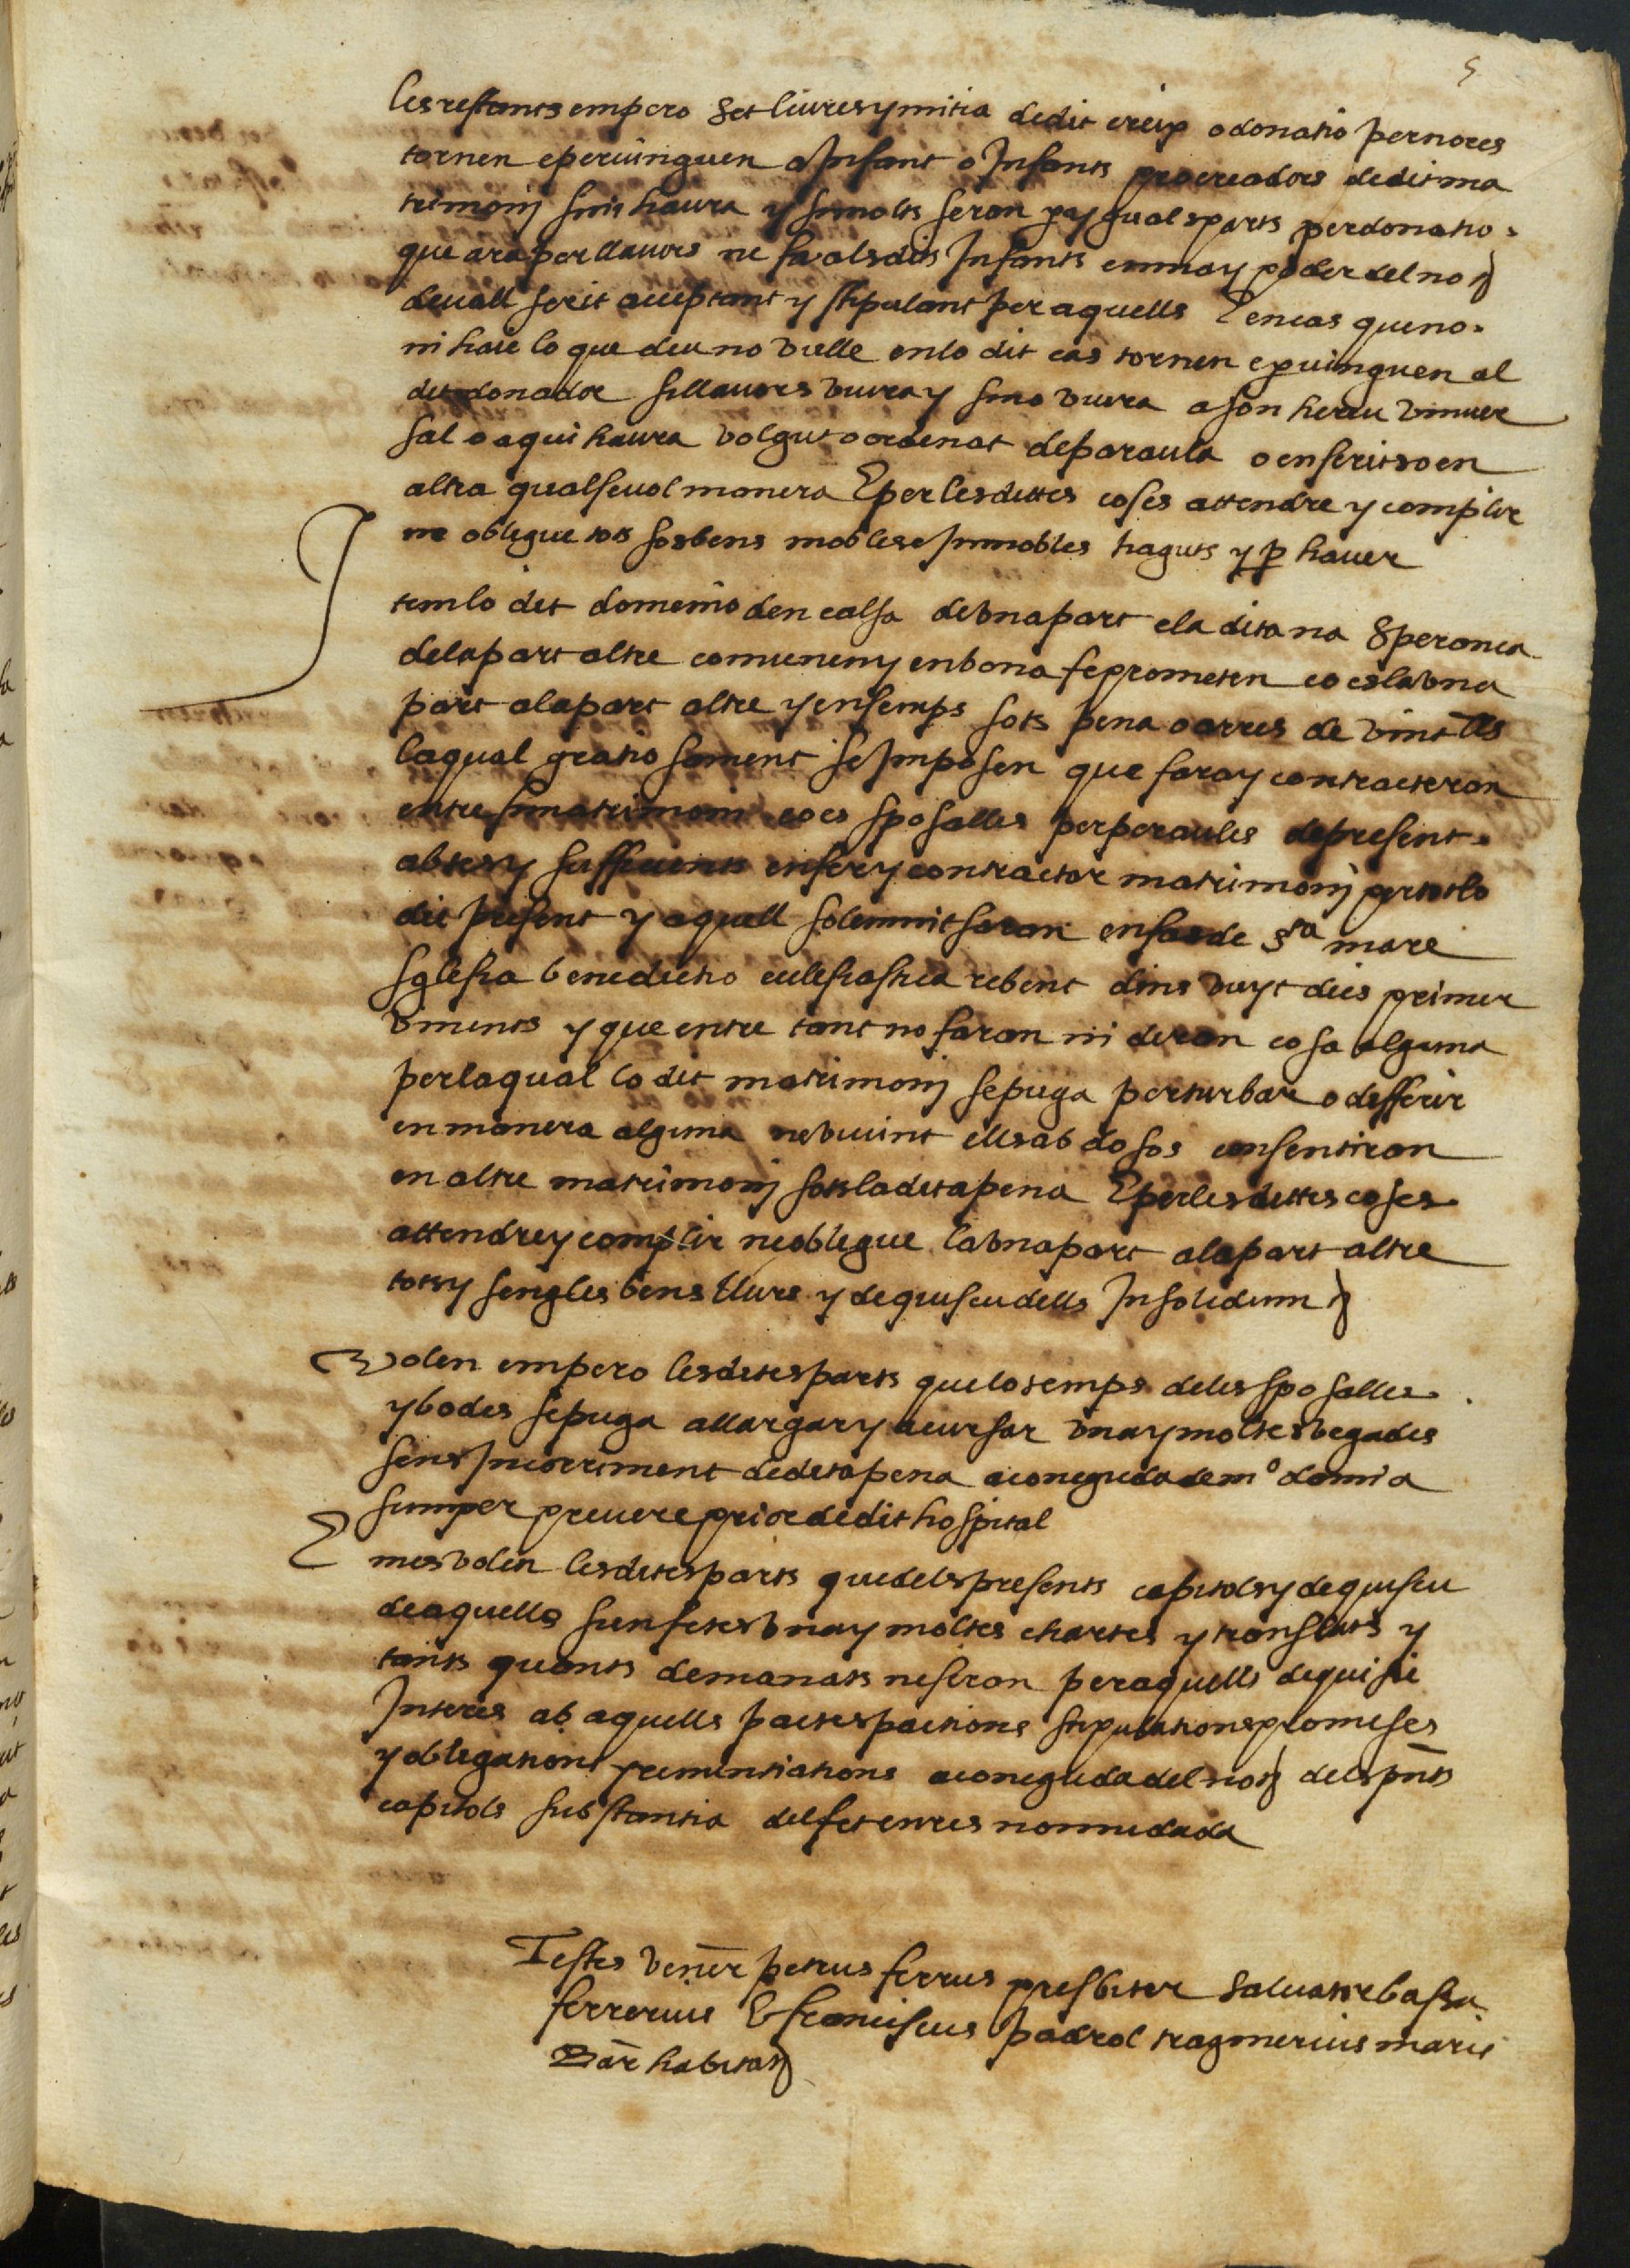 5
les restants empero set liures y mitia de dit creix o donatio per nores
tornen e peruinguen a Infant o Infants procreadors de dit ma
trimonj sinihaura y si molts seran p ygualsparts per donatio
que ara per llauors ne fa als dits Infants en ma y poder del not
deuall scrit acceptant y stipulant per aquells E en cas que no
ni haie lo que deu no vulle en lo dit cas tornen e peruinguen al
dit donador si llauors viura y sino viura a son hereu vniuer
sal o a qui haura volgut o ordenat de paraula o en scrits o en
altra qualseuol manera E per les dittes coses attendre y complir
ne oblegue tots sos bens mobles e Immobles haguts y p hauer
Item lo dit domemio den calsa de vna part e la dita na Speronca
de la part altre conuenen y en bona fe prometen co es la vna
part a la part altre y ensemps sots pena o arres de vint lls
la qual gratiosament se Imposen que faran y contractaran
entre si matrimoni co es sposalles per peraules de present
abtes y sufficients en fer y contractar matrimonj per tot lo
dit present y aquell solemnitsaran en fas de sta mare
sglesia benedictio eclesiastica rebent dins vuyt dies primer
vinents y que entre tant no faran ni diran cosa alguna
per la qual lo dit matrimonj se puga perturbar o defferir
en manera alguna ne viuint ells abdosos consentiran
en altre matrimonj sots la dita pena E per les dittes coses
attendre y complir ne oblegue la vna part a la part altre
tots y sengles bens llurs y de quiscu dells Insolidum
Volen empero les dites parts que lo temps de les sposalles
y bodes se puga allargar y acursar vna y moltes vegades
sens Incorriment de dita pena a coneguda de mo damia
sumper preuere prior de dit hospital
E mes volen les dites parts que dels presents capitols y de quiscu
de aquells sien fetes vna y moltes chartes y translats y
tants quants demanats ne seran per aquells de qui sie
Interes ab aquells pactes pactions stipulations promeses
y obligations y renuntiations a coneguda del not dels pnts
capitols substantia del fet en res no mudada
Testes vener petrus ferrus presbiter saluator bassa
ferrerius & franciscus padrol traginerius maris
Bar habitat